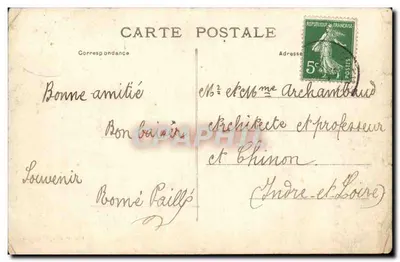 CARTE POSTALE
Correspondance
Adresse
REPUBLIQUE FRANÇAISE
5c
POSTES
Bonne amitié
Bon baisir
Souvenir
Romé Paillé
Mr et Mme Archambaud
Architecte et professeur
et Chinon
(Indre-et-Loire)